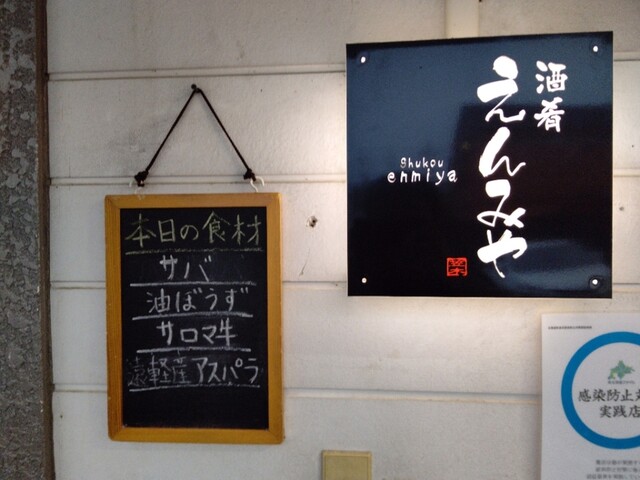 本日の食材
サバ
油ぼうず
サロマ牛
遠軽産アスパラ
酒肴
えんみや
Shukou
enmiya
感染防止対
実践店